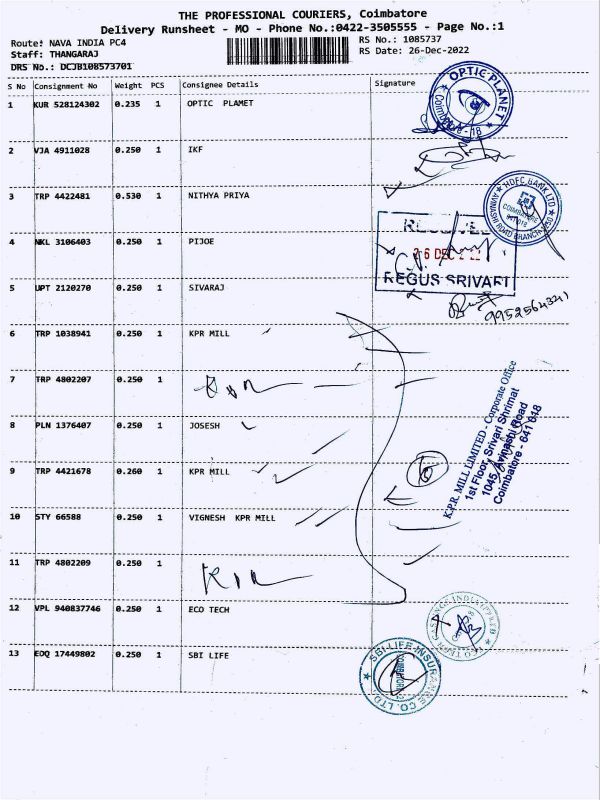 THE PROFESSIONAL COURIERS, Coimbatore
Delivery Runsheet - MO - Phone No.:0422-3505555 - Page No.:1
Route: NAVA INDIA PC4
RS No.: 1085737
Staff: THANGARAJ
RS Date: 26-Dec-2022
DRS No.: DCJB108573701
S No Consignment No Weight PCS Consignee Details Signature
1 KUR 528124302 0.235 1 OPTIC PLAMET
OPTIC PLANET
Coimbatore - 18
2 VJA 4911028 0.250 1 IKF
3 TRP 4422481 0.530 1 NITHYA PRIYA
HDFC BANK LTD
AVINASHI ROAD BRANCH
COIMBATORE
4 NKL 3106403 0.250 1 PIJOE
RECEIVED
26 DEC
REGUS SRIVARI
5 UPT 2120270 0.250 1 SIVARAJ
9952564341
6 TRP 1038941 0.250 1 KPR MILL
7 TRP 4802207 0.250 1
8 PLN 1376407 0.250 1 JOSESH
9 TRP 4421678 0.260 1 KPR MILL
6
K.P.R. MILL LIMITED - Corporate Office
1st Floor, Srivari Shrimat
1045, Avinashi Road
Coimbatore - 641 018
10 STY 66588 0.250 1 VIGNESH KPR MILL
11 TRP 4802209 0.250 1
12 VPL 940837746 0.250 1 ECO TECH
13 EDQ 17449802 0.250 1 SBI LIFE
SBI LIFE INSURANCE CO. LTD